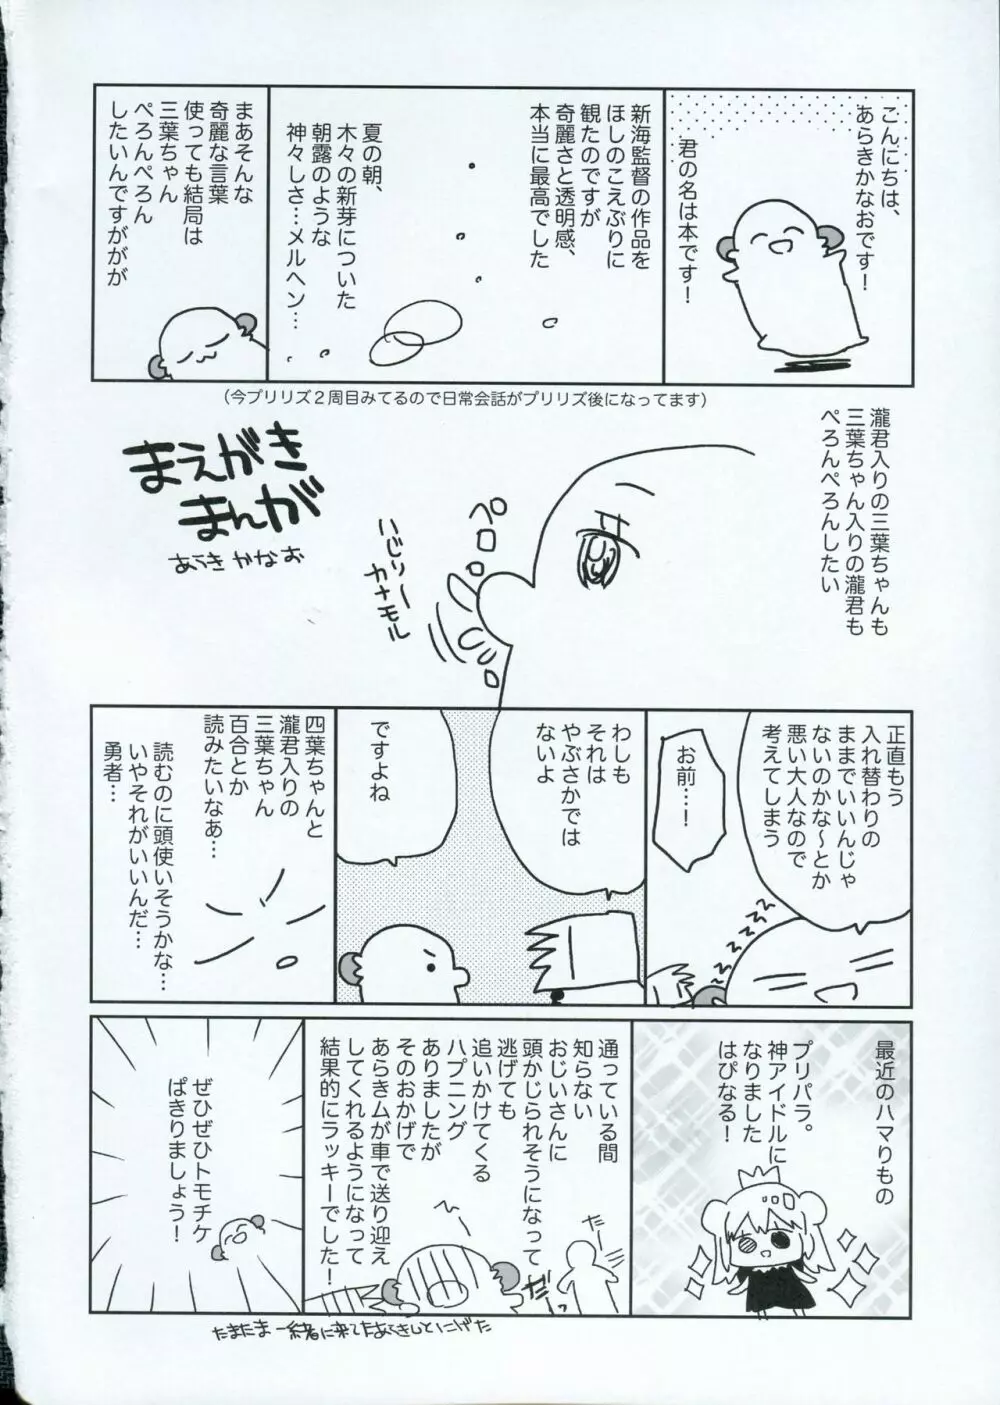 こんにちは、
あらきかなおです！
君の名は本です！
新海監督の作品を
ほしのこえぶりに
観たのですが
奇麗さと透明感、
本当に最高でした
夏の朝、
木々の新芽についた
朝露のような
神々しさ…メルヘン…
まあそんな
奇麗な言葉
使っても結局は
三葉ちゃん
ぺろんぺろん
したいんですががが
（今プリリズ２周目みてるので日常会話がプリリズ後になってます）
瀧君入りの三葉ちゃんも
三葉ちゃん入りの瀧君も
ぺろんぺろんしたい
ペロ
ペロ
はじりー
カナモル
まえがき
まんが
あらきかなお
正直もう
入れ替わりの
ままでいいんじゃ
ないのかな～とか
悪い大人なので
考えてしまう
お前…！
わしも
それは
やぶさかでは
ないよ
ですよね
四葉ちゃんと
瀧君入りの
三葉ちゃん
百合とか
読みたいなあ…
読むのに頭使いそうかな…
いやそれがいいんだ…
勇者…
最近のハマりもの
プリパラ。
神アイドルに
なりました
はぴなる！
通っている間
知らない
おじいさんに
頭かじられそうになって
逃げても
追いかけてくる
ハプニング
ありましたが
そのおかげで
あらきムが車で送り迎え
してくれるようになって
結果的にラッキーでした！
だー
だっ
ぜひぜひトモチケ
ぱきりましょう！
たまたま一緒に来てたあてきしとにげた